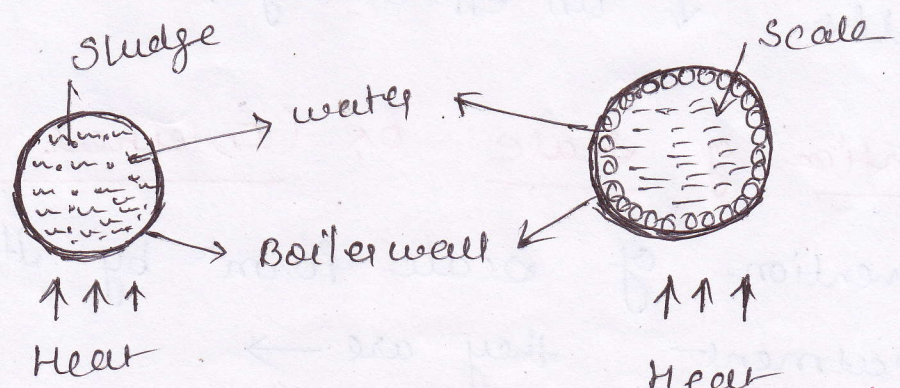 Sludge
Scale
water
Boiler wall
Heat
Heat